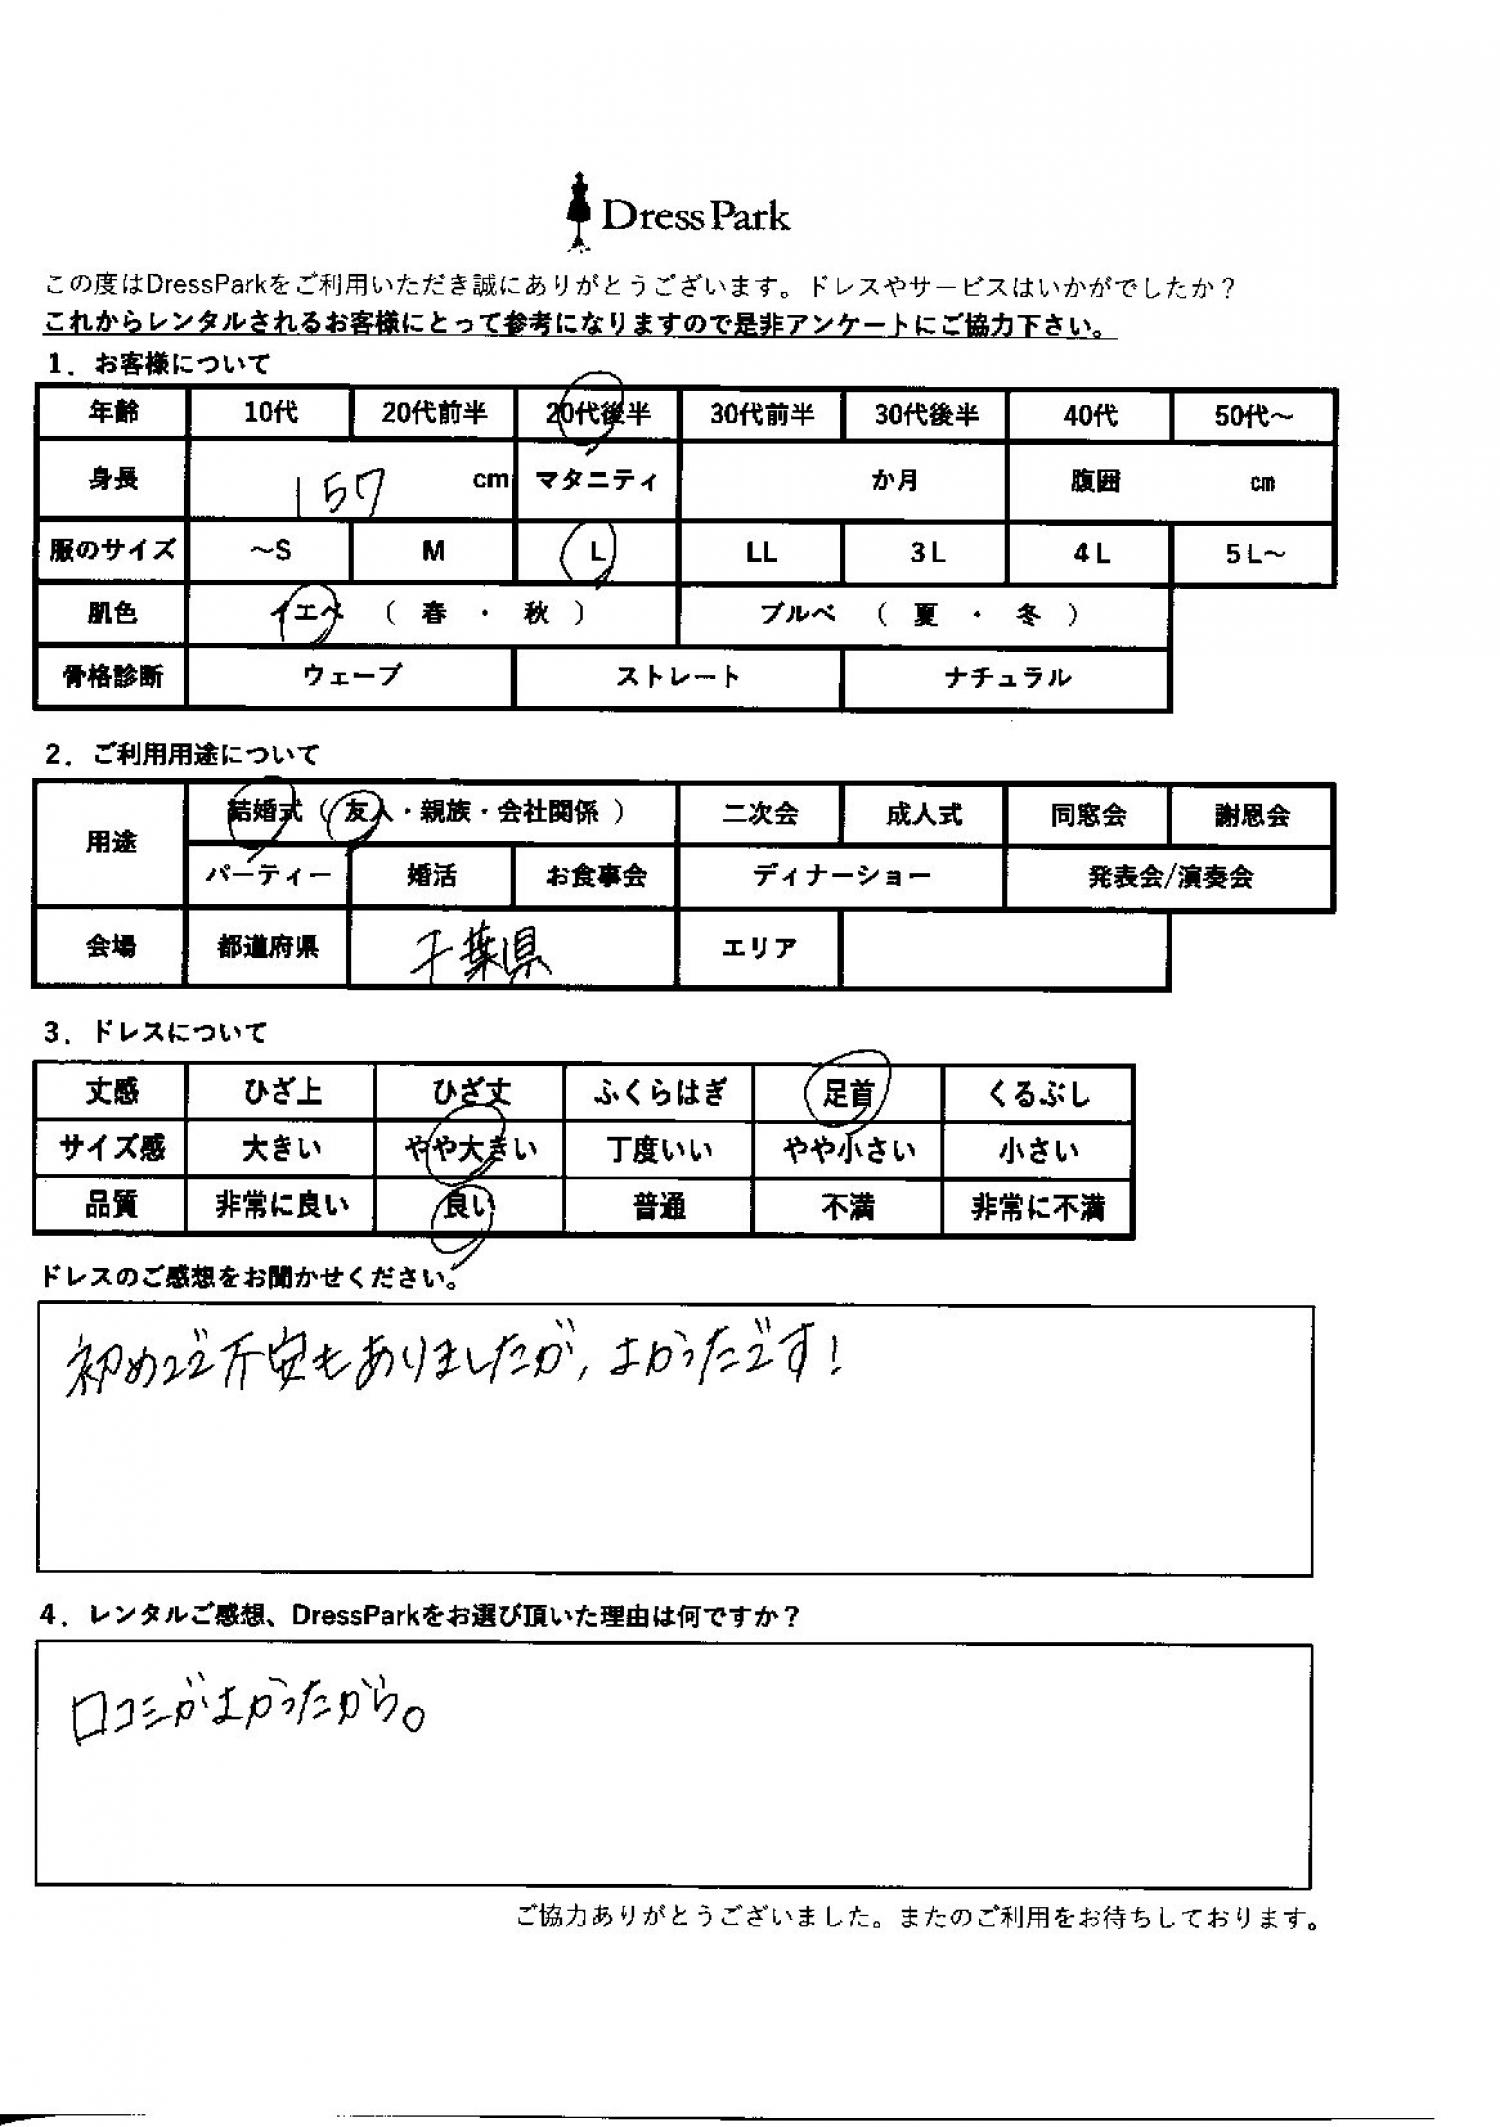 Dress Park
この度はDressParkをご利用いただき誠にありがとうございます。ドレスやサービスはいかがでしたか？
これからレンタルされるお客様にとって参考になりますので是非アンケートにご協力下さい。
1．お客様について
年齢 10代 20代前半 20代後半 30代前半 30代後半 40代 50代～
身長 157 cm マタニティ か月 腹囲 cm
服のサイズ ～S M L LL 3L 4L 5L～
肌色 イエベ （ 春 ・ 秋 ） ブルベ （ 夏 ・ 冬 ）
骨格診断 ウェーブ ストレート ナチュラル
2．ご利用用途について
用途 結婚式（ 友人・親族・会社関係 ） 二次会 成人式 同窓会 謝恩会
パーティー 婚活 お食事会 ディナーショー 発表会/演奏会
会場 都道府県 千葉県 エリア
3．ドレスについて
丈感 ひざ上 ひざ丈 ふくらはぎ 足首 くるぶし
サイズ感 大きい やや大きい 丁度いい やや小さい 小さい
品質 非常に良い 良い 普通 不満 非常に不満
ドレスのご感想をお聞かせください。
初めてで不安もありましたが, よかったです!
4．レンタルご感想、DressParkをお選び頂いた理由は何ですか？
口コミがよかったから。
ご協力ありがとうございました。またのご利用をお待ちしております。